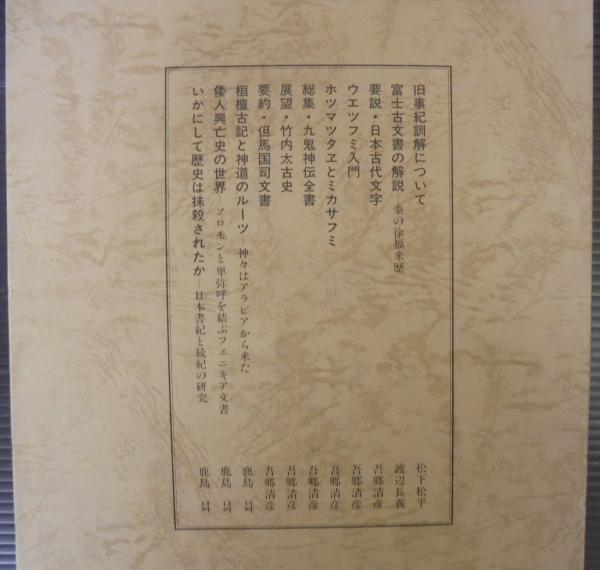 旧事紀訓解について 松下松平
富士古文書の解説―秦の徐福来歴 渡辺長義
要説・日本古代文字 吾郷清彦
ウエツフミ入門 吾郷清彦
ホツマツタヱとミカサフミ 吾郷清彦
総集・九鬼神伝全書 吾郷清彦
展望・竹内太古史 吾郷清彦
要約・但馬国司文書 吾郷清彦
桓檀古記と神道のルーツ―神々はアラビアから来た 鹿島曻
倭人興亡史の世界―ソロモンと卑弥呼を結ぶフェニキア文書 鹿島曻
いかにして歴史は抹殺されたか―日本書紀と続紀の研究 鹿島曻